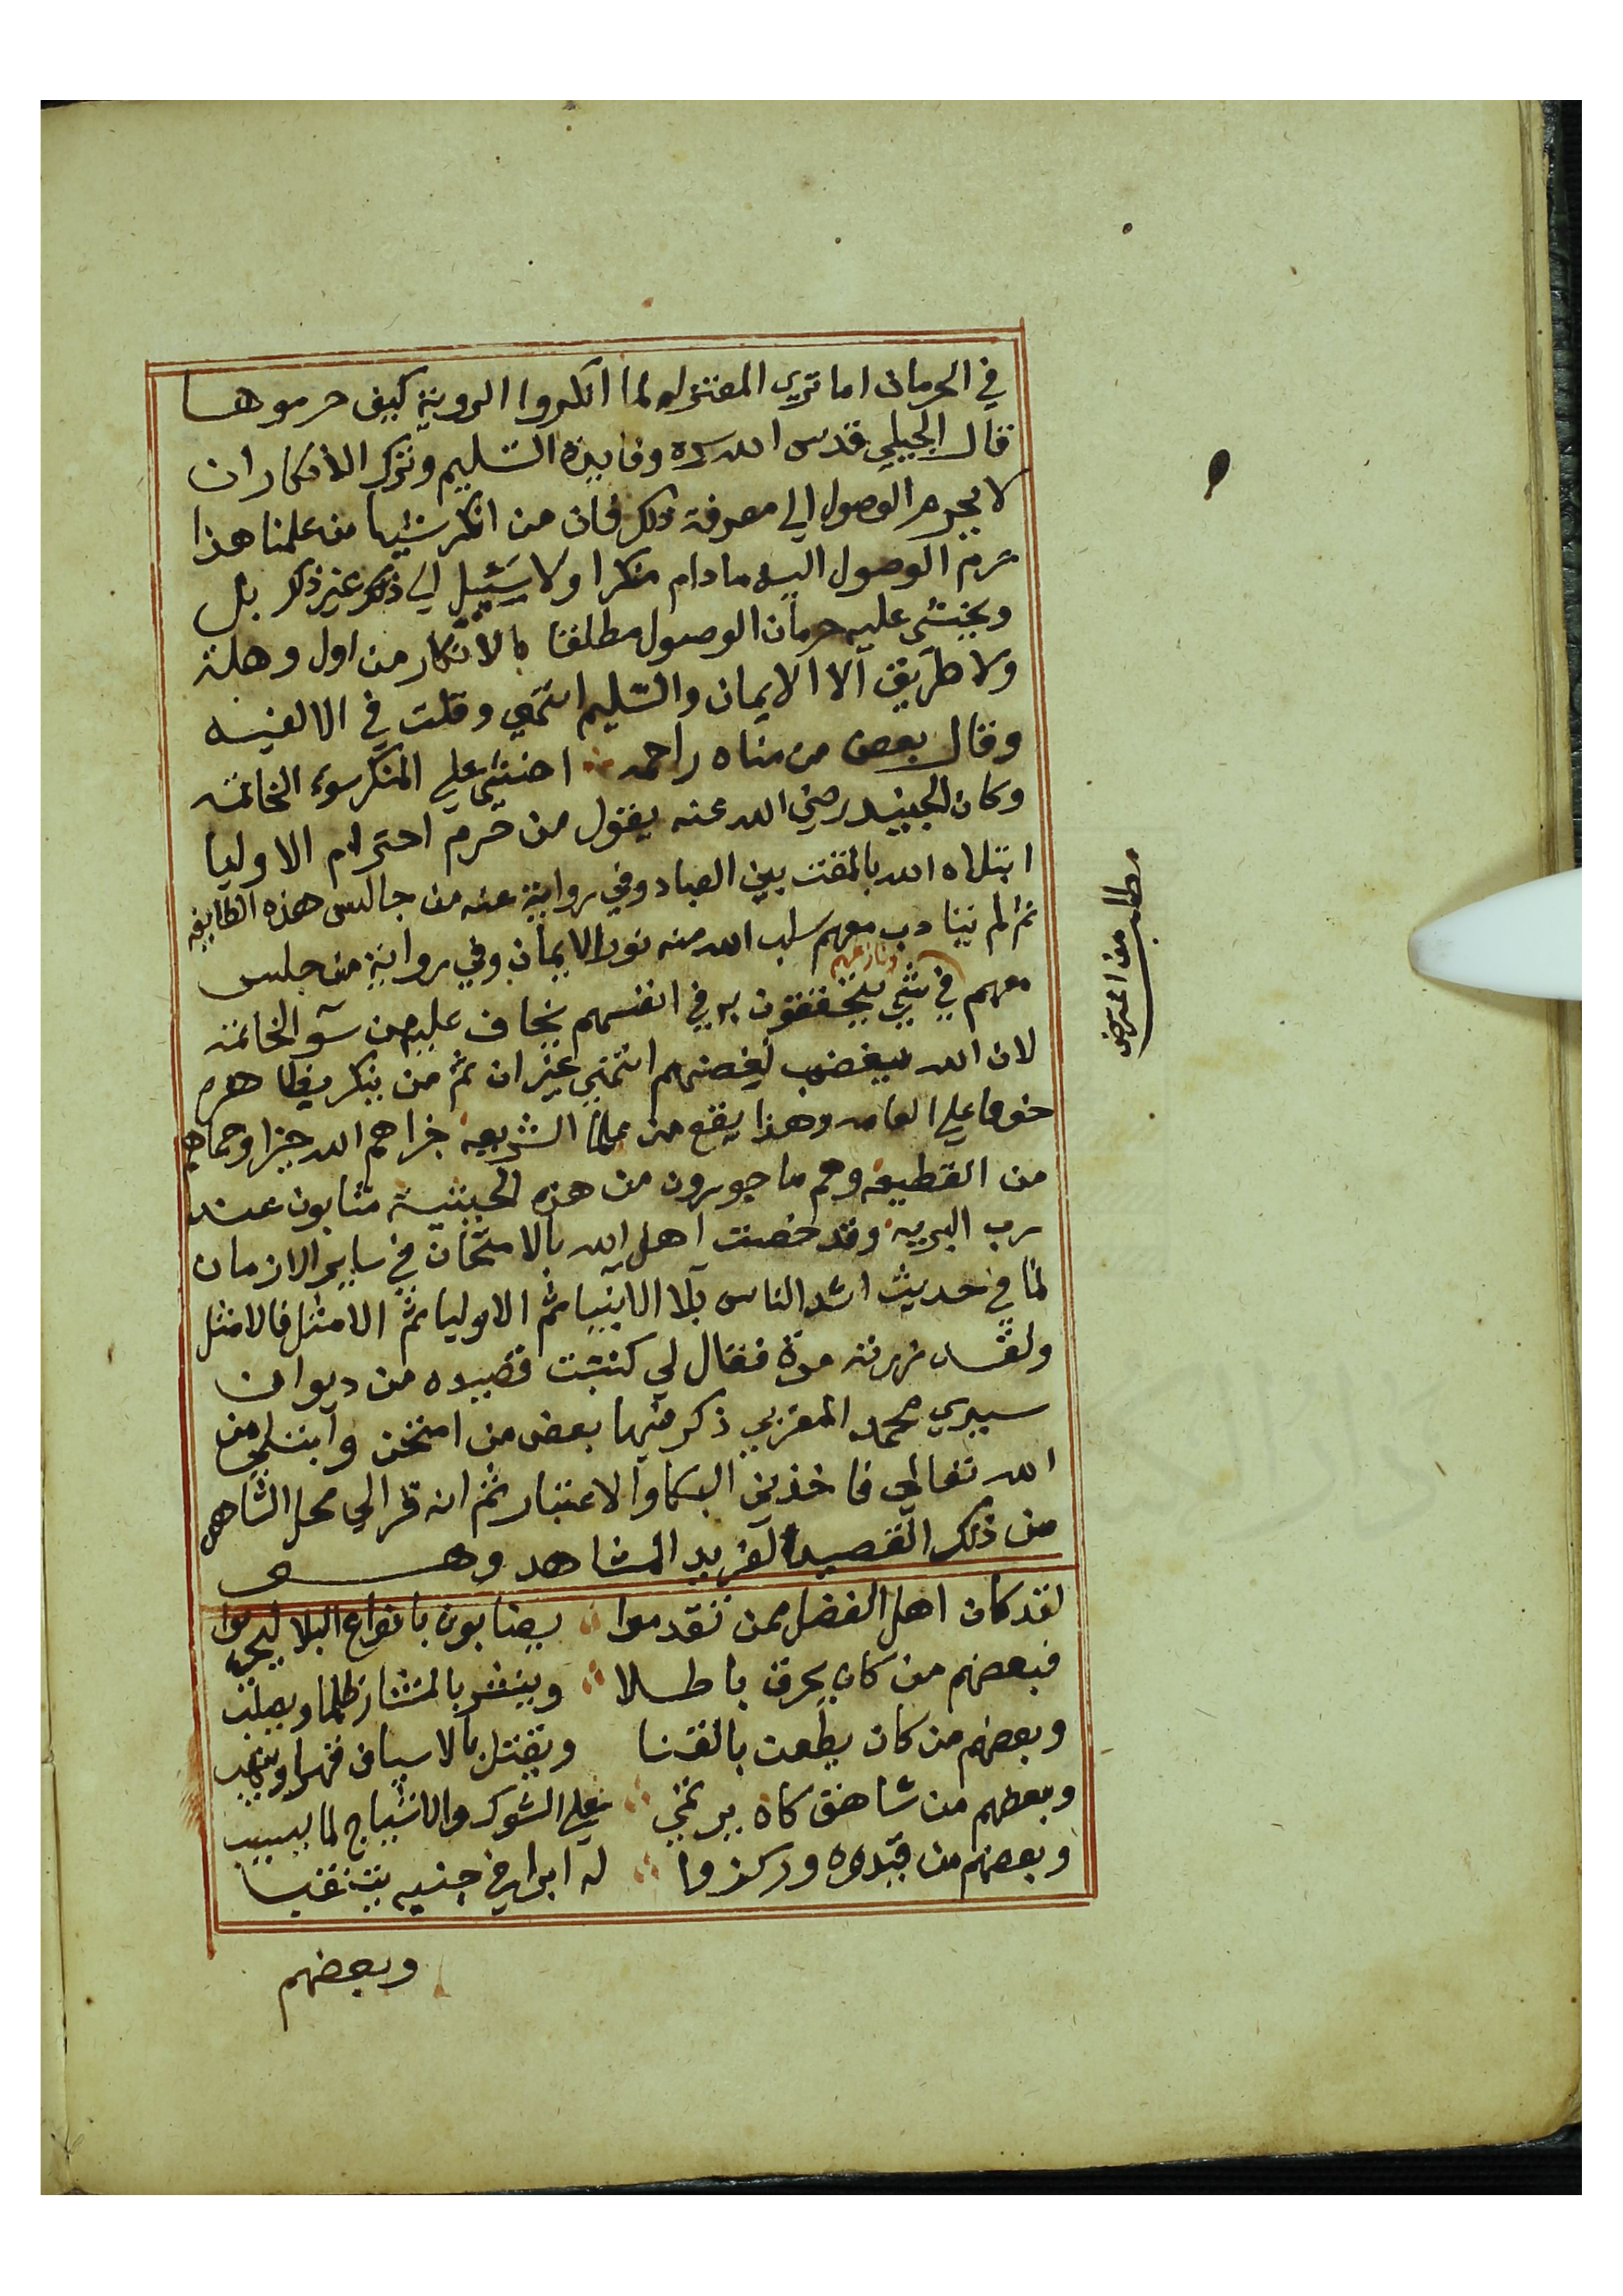 في الحرمان اما تري المعتزله لما انكروا الروية كيف حرموها
قال الجيلي قدس الله سره وفايدة التسليم وترك الانكار ان
لا يحرم الوصول الي معرفة ذلك فان من انكر شيا من علمنا هذا
حرم الوصول اليه ما دام منكرا ولا سبيل الي ذلك غير ذلك بل
ويخشي عليه حرمان الوصول مطلقا بالانكار من اول وهلة
ولا طريق الا الايمان والتسليم انتهي وقلت في الالفيه
وقال بعض من مناه راحمه اخشي علي المنكر سوء الخاتمه
وكان الجنيد رضي الله عنه يقول من حرم احترام الاوليا
ابتلاه الله بالمقت بين العباد وفي رواية عنه من جالس هذه الطايفه
ثم لم يتادب معهم سلب الله منه نور الايمان وفي رواية من جلس
معهم ونازعهم في شي يتحققون به في انفسهم يخاف عليه من سو الخاتمة
لان الله يغضب لغضبهم انتهي غير ان ثم من ينكر ظاهرا
خوفا علي العامه وهذا يقع من علما الشريعة جزاهم الله خيرا وحماهم
من القطيعه وهم ماجورون من هذه الحيثية مثابون عند
رب البريه وقد خصت اهل الله بالامتحان في ساير الازمان
كما في حديث اشد الناس بلا الانبيا ثم الاوليا ثم الامثل فالامثل
ولقد زرته مرة فقال لي كتبت قصيده من ديوان
سيدي محمد المغربي ذكر فيها بعض من امتحن وابتلي من
الله تعالي فاخذني البكا والاعتبار ثم انه قرا لي محل الشاهد
من ذلك القصيد الفريد المشاهد وهو
لقد كان اهل الفضل ممن تقدموا يصابون بانواع البلا ليجربوا
فبعضهم من كان يحرق باطلا وينشر بالمنشار ظلما ويصلب
وبعضهم من كان يطعن بالقنا ويقتل بالاسياف قهرا وينهب
وبعضهم من شاهق كان يرتمي علي الشوك والاشياح لما يسبب
وبعضهم من قيدوه وركزوا له ابرا في جنبيه تتنقب
وبعضهم
مطلب من اعترض